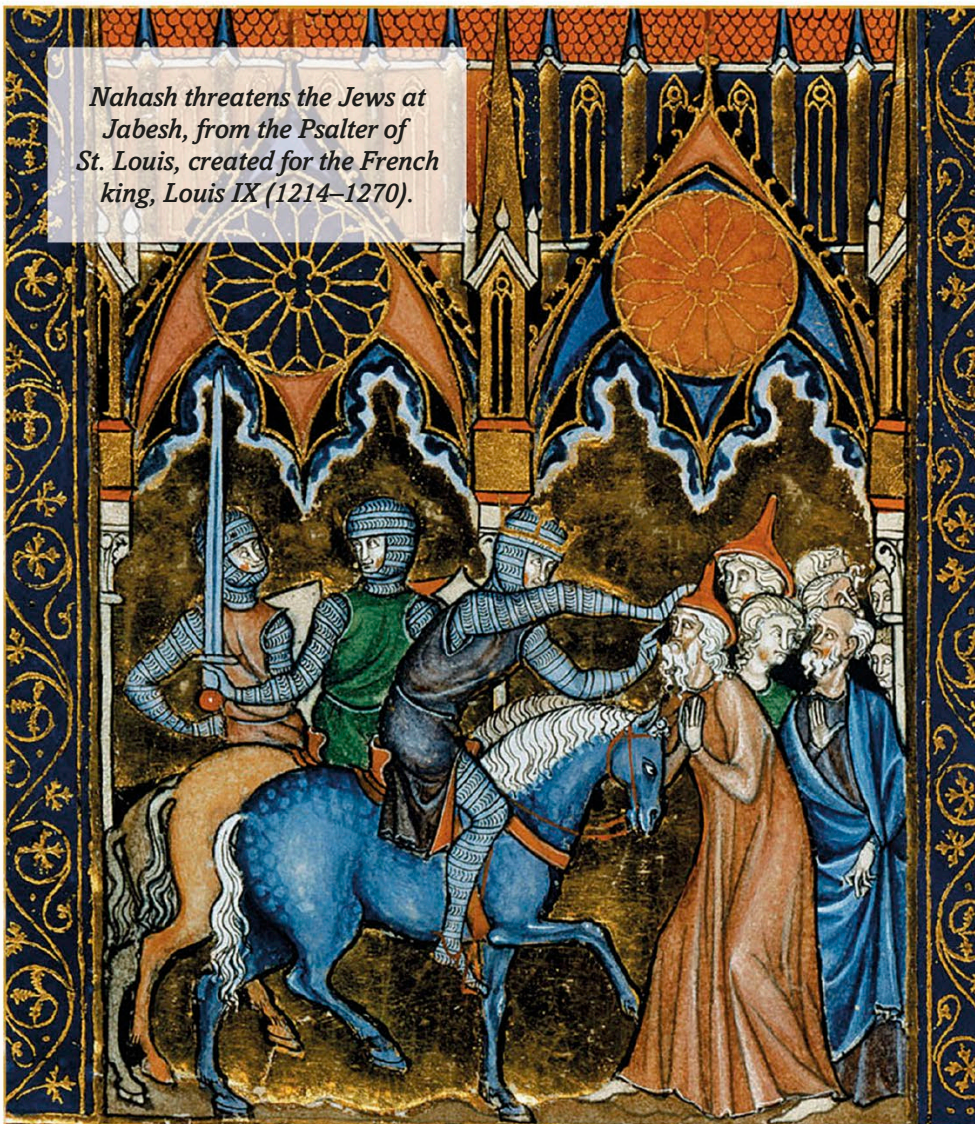 Nahash threatens the Jews at
Jabesh, from the Psalter of
St. Louis, created for the French
king, Louis IX (1214–1270).